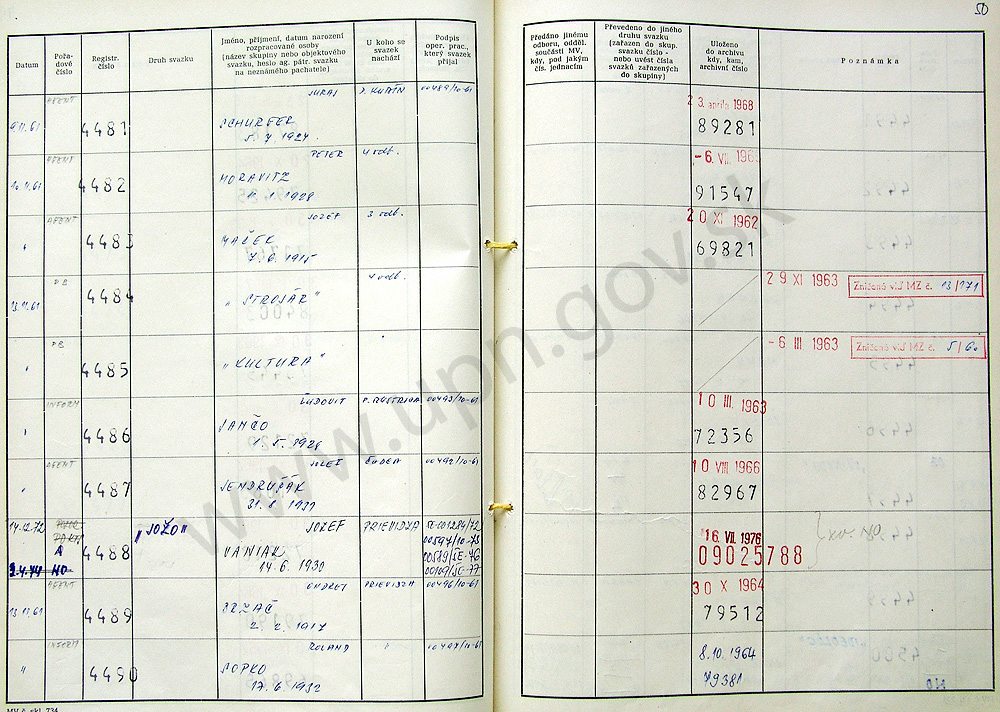 50
Datum
Pořa-
dové
číslo
Registr.
číslo
Druh svazku
Jméno, příjmení, datum narození
rozpracované osoby
(název skupiny nebo objektového
svazku, heslo ag. pátr. svazku
na neznámého pachatele)
U koho se
svazek
nachází
Podpis
oper. prac.,
který svazek
přijal
Předáno jinému
odboru, odděl.
součásti MV,
kdy, pod jakým
čís. jednacím
Převedeno do jiného
druhu svazku
(zařazen do skup.
svazku číslo -
nebo uvést čísla
svazků zařazených
do skupiny)
Uloženo
do archivu
kdy, kam,
archivní číslo
Poznámka
AGENT JURAJ 00489/10-61
9.11.61 4481 SCHURGER
5. 7. 1924.
23. apríla 1968
89281
AGENT PETER 4 odb.
10.11.61 4482 MORAVITZ
1928
-6. VII. 196
91547
AGENT JOZEF 3 odb.
" 4483 MAČEK
7. 6. 1915
20 XI 1962
69821
4 odb.
13.11.61 4484 „STROJÁR"
29 XI 1963 Zničené v.s MZ č. 13/171
" 4485 „KULTURA"
-6 III 1963 Zničené v.s MZ č. 5/60
INFORM ĽUDOVIT P. BYSTRICA 00493/10-61
" 4486 JANČO
10 III. 1963
72356
AGENT 00492/10-61
" 4487 JENDRUŠÁK
10 VIII 1966
82967
14.12.72 „JOŽO" JOZEF PRIEVIDZA
A 00597/10-73
4488 VANIAK 00519/ŠE-76
14. 6. 1930 00109/ŠE-77
2.4.74 NO
16. VII. 1976
09025788
AGENT ONDREJ PRIEVIDZA 00496/10-61
13.11.61 4489
2. 2. 1917
30 X 1964
79512
INFORM ROLAND " 00497/10-61
" 4490 SOPKO
17. 6. 1932
8. 10. 1964
79381
www.upn.gov.sk